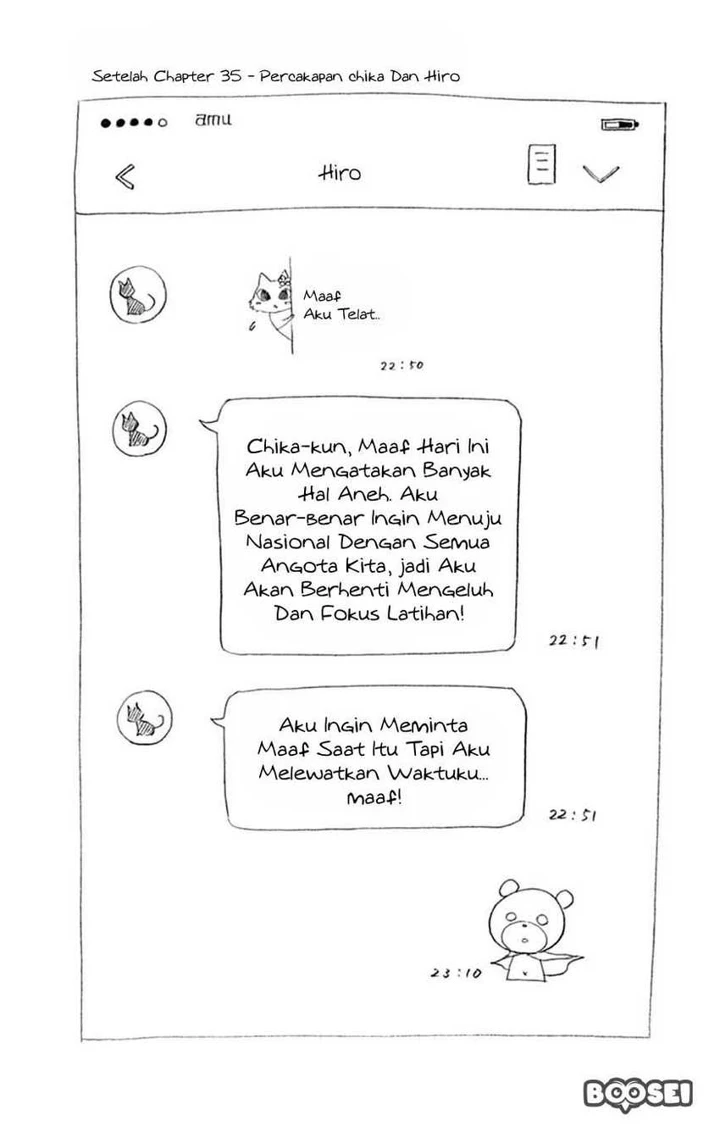 Setelah Chapter 35 - Percakapan chika Dan Hiro
amu
Hiro
Maaf
Aku Telat..
22:50
Chika-kun, Maaf Hari Ini
Aku Mengatakan Banyak
Hal Aneh. Aku
Benar-Benar Ingin Menuju
Nasional Dengan Semua
Angota Kita, jadi Aku
Akan Berhenti Mengeluh
Dan Fokus Latihan!
22:51
Aku Ingin Meminta
Maaf Saat Itu Tapi Aku
Melewatkan Waktuku...
maaf!
22:51
23:10
BOOSEI